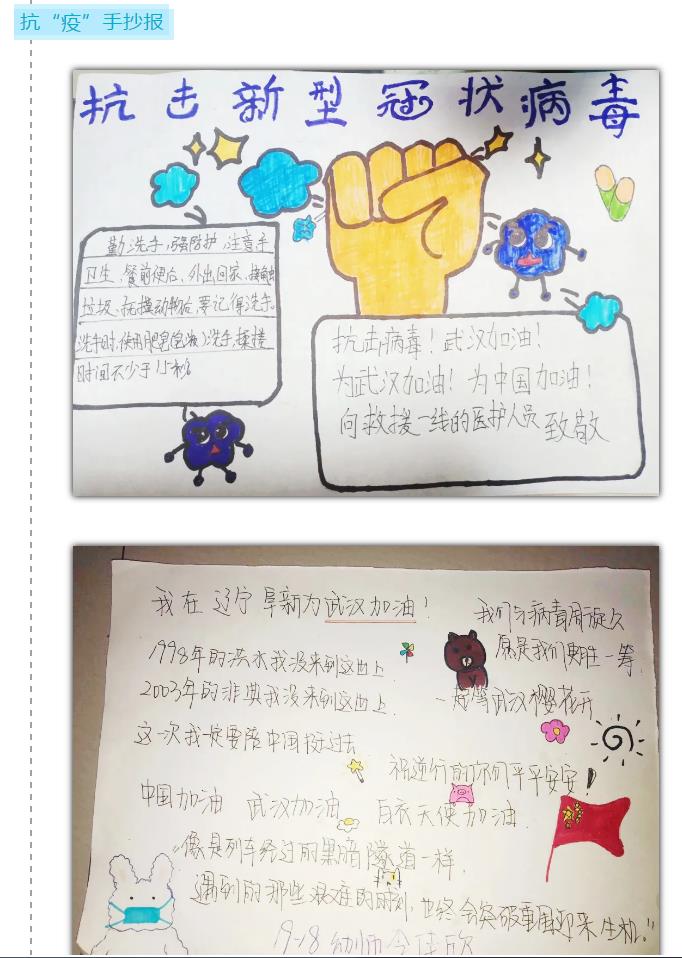 抗“疫”手抄报
抗击新型冠状病毒
勤洗手,强防护,注意手
卫生、餐前便后、外出回家、接触
垃圾、抚摸动物后、要记得洗手。
洗手时,使用肥皂(泡液)洗手,揉搓
时间不少于15秒
抗击病毒!武汉加油!
为武汉加油!为中国加油!
向救援一线的医护人员致敬
我在辽宁阜新为武汉加油!
我们与病毒周旋久
愿是我们更胜一筹
1998年的洪水我没来到这世上
2003年的非典我没来到这世上
一起等武汉樱花开
这一次我一定要陪中国挺过去
祝逆行的你们平平安安!
中国加油 武汉加油 白衣天使加油
“像是列车经过的黑暗隧道一样,
遇到的那些艰难的时刻,也终会突破重围迎来生机。”
19-18幼师